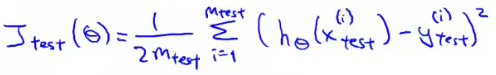 J_test(θ) = \frac{1}{2m_test} \sum_{i=1}^{m_test} (h_θ(x_test^{(i)}) - y_test^{(i)})^2